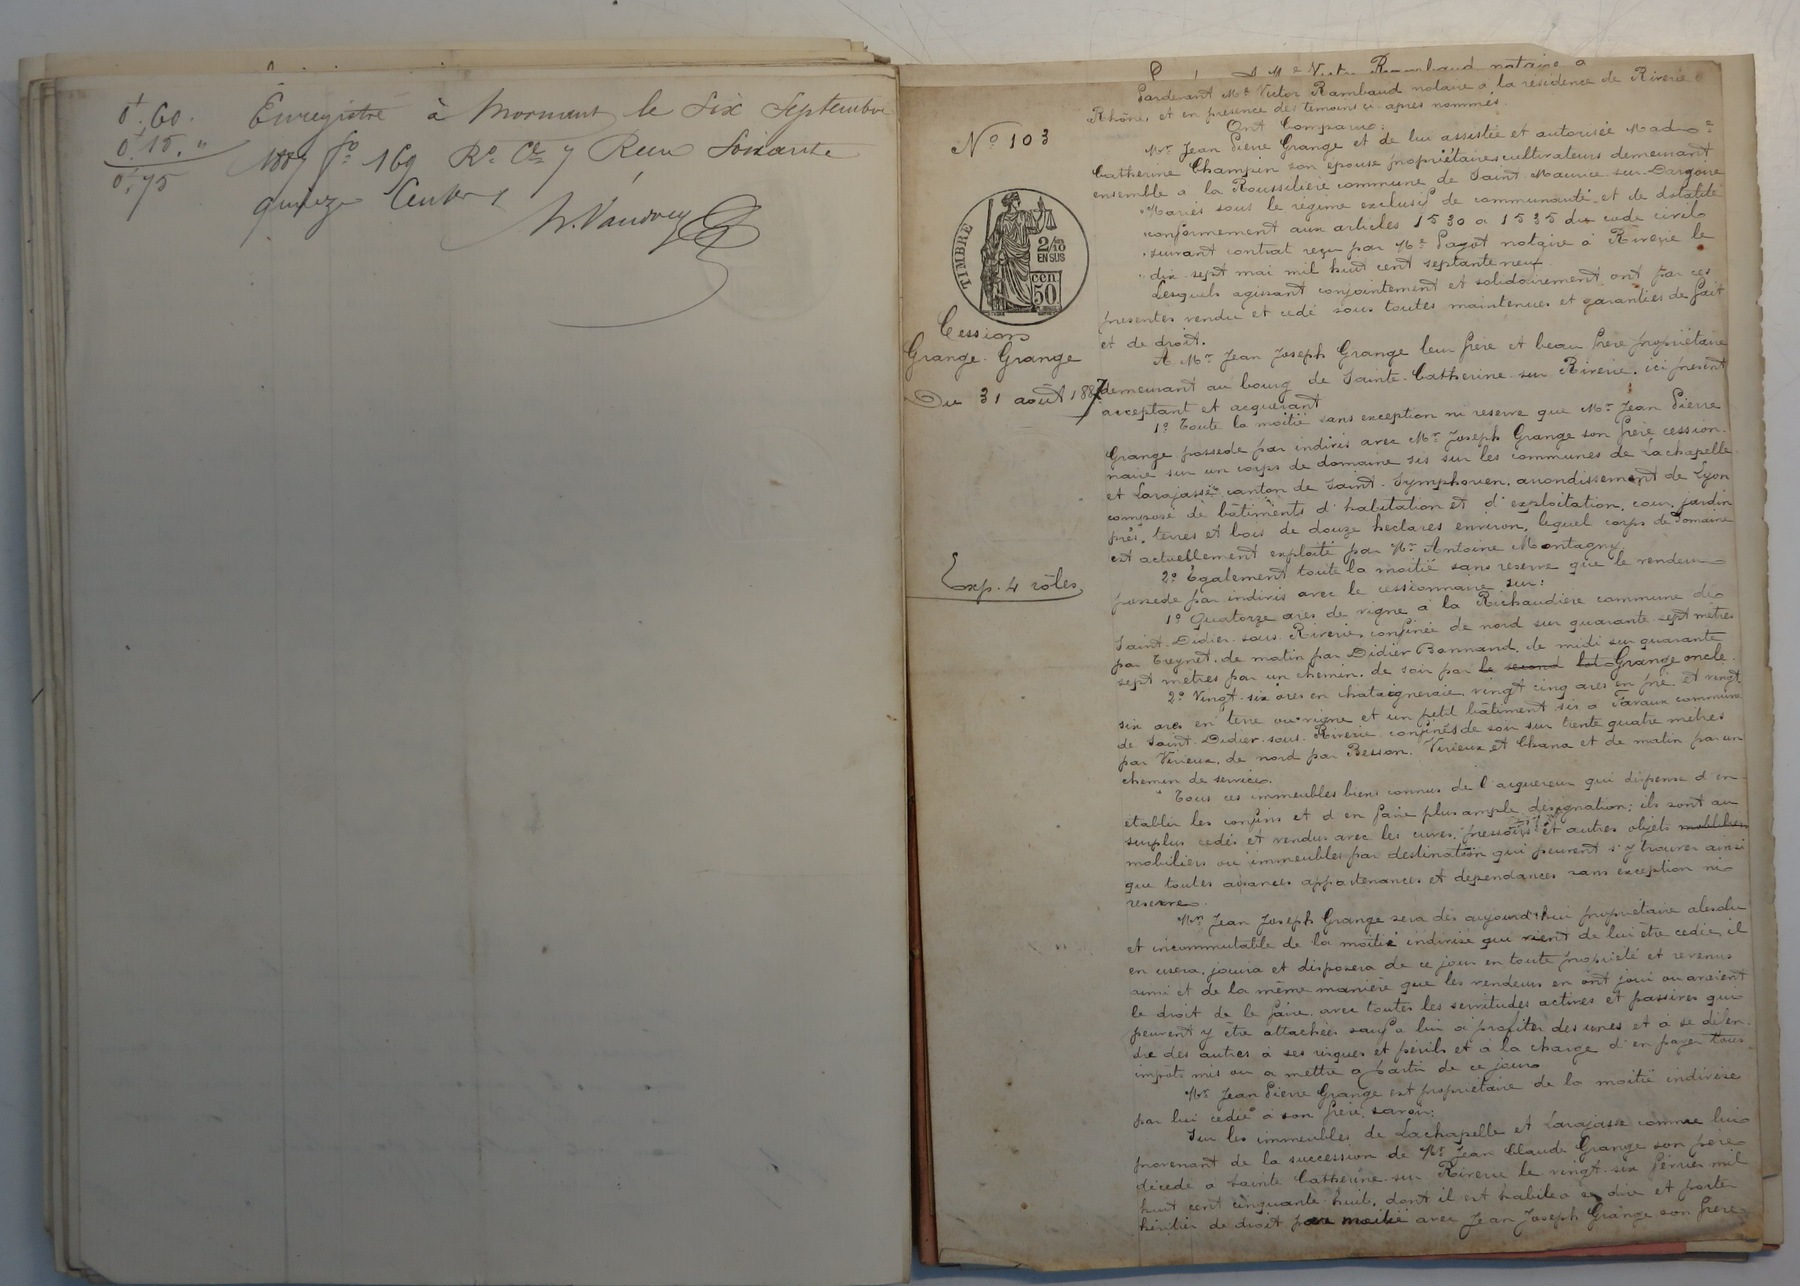 0f,60.
0f,15. "
0f,75
Enregistré à Mornant le six Septembre
1887 fo 169 Ro Ce 7 Reçu Soixante
quinze Centes
Nº 103
TIMBRE
2/10
EN SUS
CEN
50
Cession
Grange-Grange
Du 31 août 1887
Exp. 4 rôles
Me Victor Rambaud notaire a
Pardevant Me Victor Rambaud notaire à la résidence de Riverie
Rhône, et en présence des témoins ci après nommés.
Ont Comparu:
Mr Jean Pierre Grange et de lui assistée et autorisée Madme
Catherine Champin son épouse propriétaires cultivateurs demeurant
ensemble à la Roussilière commune de Saint Maurice sur Dargoire
"Mariés sous le régime exclusif de communauté et de dotalité
"conformement aux articles 1530 a 1535 du code civil
"suivant contrat reçu par Me Pazot notaire à Riverie le
"dix sept mai mil huit cent septante neuf.
Lesquels agissant conjointement et solidairement ont par ces
presentes vendu et cédé sous toutes maintenues et garanties de fait
et de droit.
A Mr Jean Joseph Grange leur frère et beau frère propriétaire
demeurant au bourg de Sainte-Catherine-sur-Riverie, ici présent
acceptant et acquérant
1º Toute la moitié sans exception ni reserve que Mr Jean Pierre
Grange possede par indivis avec Mr Joseph Grange son frère cession-
naire sur un corps de domaine sis sur les communes de Lachapelle
et Larajasse canton de Saint-Symphorien, arrondissement de Lyon
composé de bâtiments d'habitation et d'exploitation, cour, jardin
prés, terres et bois de douze hectares environ, lequel corps de domaine
est actuellement exploité par Mr Antoine Montagny.
2º Egalement toute la moitié sans reserve que le vendeur
possede par indivis avec le cessionnaire sur:
1º Quatorze ares de vigne à la Richaudière commune de
Saint-Didier-sous-Riverie, confinée de nord sur quarante-sept mètres
par Treynet, de matin par Didier Bonnand, de midi sur quarante
sept mètres par un chemin, de soir par le second lot Grange oncle.
2º Vingt-six ares en chataigneraie vingt cinq ares en pré et vingt
six ares en terre ou vigne et un petit bâtiment sis à Favaux commune
de Saint-Didier-sous-Riverie confinés de soir sur trente quatre mètres
par Virieux, de nord par Besson, Virieux et Chana et de matin par un
chemin de service.
Tous ces immeubles biens connus de l'acquereur qui dispense d'en
établir les confins et d'en faire plus ample désignation; ils sont au
surplus cédés et vendus avec les cuves, pressoirs et autres objets
mobiliers ou immeubles par destination qui peuvent s'y trouver ainsi
que toutes aisances appartenances et dépendances sans exception ni
reserve.
Mr Jean Joseph Grange sera dès aujourd'hui propriétaire absolu
et incommutable de la moitié indivise qui vient de lui être cédée, il
en usera, jouira et disposera de ce jour en toute propriété et revenus
ainsi et de la même manière que les vendeurs en ont joui ou avaient
le droit de le faire avec toutes les servitudes actives et passives qui
peuvent y être attachées sauf a lui à profiter des unes et à se défen-
dre des autres à ses risques et périls et à la charge d'en payer tous
impôts mis ou a mettre a partir de ce jour.
Mr Jean Pierre Grange est propriétaire de la moitié indivise
par lui cedée à son frère, savoir:
Sur les immeubles de Lachapelle et Larajasse comme lui
provenant de la succession de Mr Jean Claude Grange son père
décédé a Sainte Catherine sur Riverie le vingt-six février mil
huit cent cinquante-huit, dont il est habile a se dire et porter
héritier de droit par moitié avec Jean Joseph Grange son frère